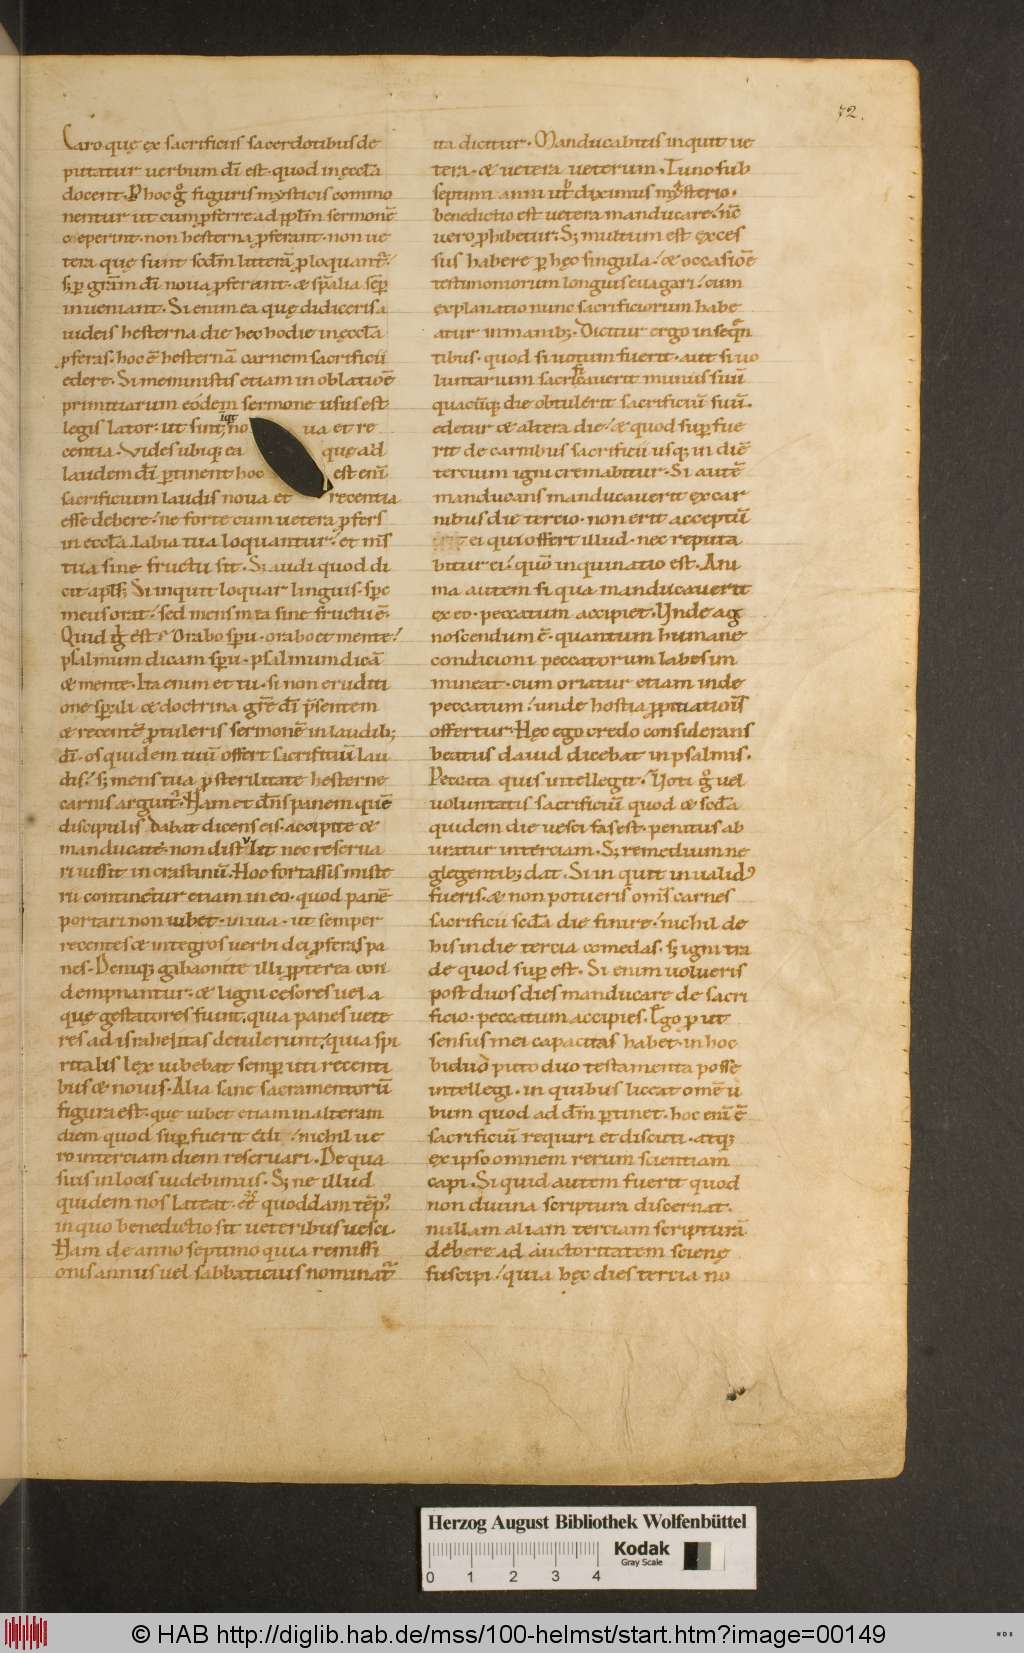 72.
Caro quę ex sacrificiis sacerdotibus de
putatur uerbum dī est. quod in ęccl̄a
docent. P hoc g̊ figuris mysticis commo
nentur ut cum ꝓferre ad ppl̄m sermonē
coeperint. non hesterna ꝓferant. non ue
tera quę sunt scdm litterā ꝓloquant̄.
sꝫ p grām dī noua ꝓferant. & sp̄alia semp̄
inueniant. Si enim ea quę didiceris a
iudeis hesterna die hec hodie in ęccl̄a
ꝓferas. hoc ē hesternā carnem sacrificii
edere. Si meministis etiam in oblatiōe
primitiarum eodem sermone usus est
legis lator. ut sint inqt no ua et re
centia. Vides ubiqꝫ ea quę ad
laudem dī ptinent hoc est enī
sacrificium laudis noua et recentia
esse debere. ne forte cum uetera ꝓfers
in eccl̄a. labia tua loquantur. et ms̄
tua sine fructu sit. Sꝫ audi quod di
cit apl̄s. Si inquit loquar linguis. spc
meus orat. sed mens mea sine fructu ē.
Quid g̊ est? Orabo spu. orabo et mente.
psalmum dicam spu. psalmum dicā
& mente. Ita enim et tu. si non eruditi
one sp̄ali & doctrina grē dī p̄sentem
& recentē ꝓtuleris sermonē in laudibꝫ
dī. os quidem tuū offert sacrificiū lau
dis. sꝫ mens tua p sterilitate hesterne
carnis arguit̄. Nam et dn̄s panem quē
discipulis dabat dicens eis. accipite &
manducate. non distulit nec reserua
ri iussit in crastinū. Hoc fortassis miste
rii continetur etiam in eo. quod panē
portari non iubet. in uia. ut semper
recentes & integros uerbi dei ꝓferas pa
nes. Deniqꝫ gabaonite illi ꝓpterea con
dempnantur. & ligni cesores uel a
que gestatores fiunt. quia panes uete
res ad israhelitas detulerunt. quia spi
ritalis lex iubebat semp uti recenti
bus & nouis. Alia sane sacramentorū
figura est. quę iubet etiam in alteram
diem quod supfuerit edi. nichil ue
ro in terciam diem reseruari. De qua
suis in locis uidebimus. Sꝫ ne illud
quidem nos lateat. quoddam temp9
in quo benedictio sit ueteribus uesci.
Nam de anno septimo quia remissi
onis annus uel sabbaticus nominat̄
ita dicitur. Manducabitis inquit ue
tera. & uetera ueterum. Tunc sub
septimi anni ut diximus mysterio.
benedictio est uetera manducare. nc̄
uero ꝓhibetur. Sꝫ multum est exces
sus habere p hęc singula. & occasiōe
testimoniorum longius euagari. cum
explanatio nunc sacrificiorum habe
atur in manibꝫ. Dicitur ergo in seqn
tibus. quod si uotum fuerit. aut si uo
luntarium sacrificauerit munus suū
quacūqꝫ die obtulerit sacrificiū suū.
edetur & altera die. & quod supfue
rit de carnibus sacrificii usqꝫ in diē
tercium igni cremabitur. Si autē
manducans manducauerit ex car
nibus die tercio. non erit acceptū
ei qui offert illud. nec reputa
bitur ei. quō inquinatio est. Ani
ma autem si qua manducauerit
ex eo. peccatum accipiet. Unde ag
noscendum ē. quantum humane
condicioni peccatorum labes im
mineat. cum oriatur etiam inde
peccatum. unde hostia ꝓpitiationis
offertur. Hęc ego credo considerans
beatus dauid dicebat in psalmis.
Peccata quis intellegit. Uoti g̊ uel
uoluntatis sacrificiū quod & scd̄a
quidem die uesci fas est. penitus ab
uratur in terciam. Sꝫ remedium ne
glegentibꝫ dat. Si inquit inualid9
fueris. & non potueris om̄s carnes
sacrificii scd̄a die finire. nichil de
his in die tercia comedas. sꝫ igni tra
de quod sup est. Si enim uolueris
post duos dies manducare de sacri
ficio. peccatum accipies. Ego p ut
sensus mei capacitas habet. in hoc
biduo puto duo testamenta posse
intellegi. in quibus liceat omē u
bum quod ad dm̄ ptinet. hoc enī ē
sacrificiū requiri et discuti. atqꝫ
ex ipso omnem rerum scientiam
capi. Si quid autem fuerit quod
non diuina scriptura discernat.
nullam aliam terciam scripturā
debere ad auctoritatem scienę
suscipi. quia hęc dies tercia no
Herzog August Bibliothek Wolfenbüttel
0 1 2 3 4
Kodak
Gray Scale
© HAB http://diglib.hab.de/mss/100-helmst/start.htm?image=00149
HAB